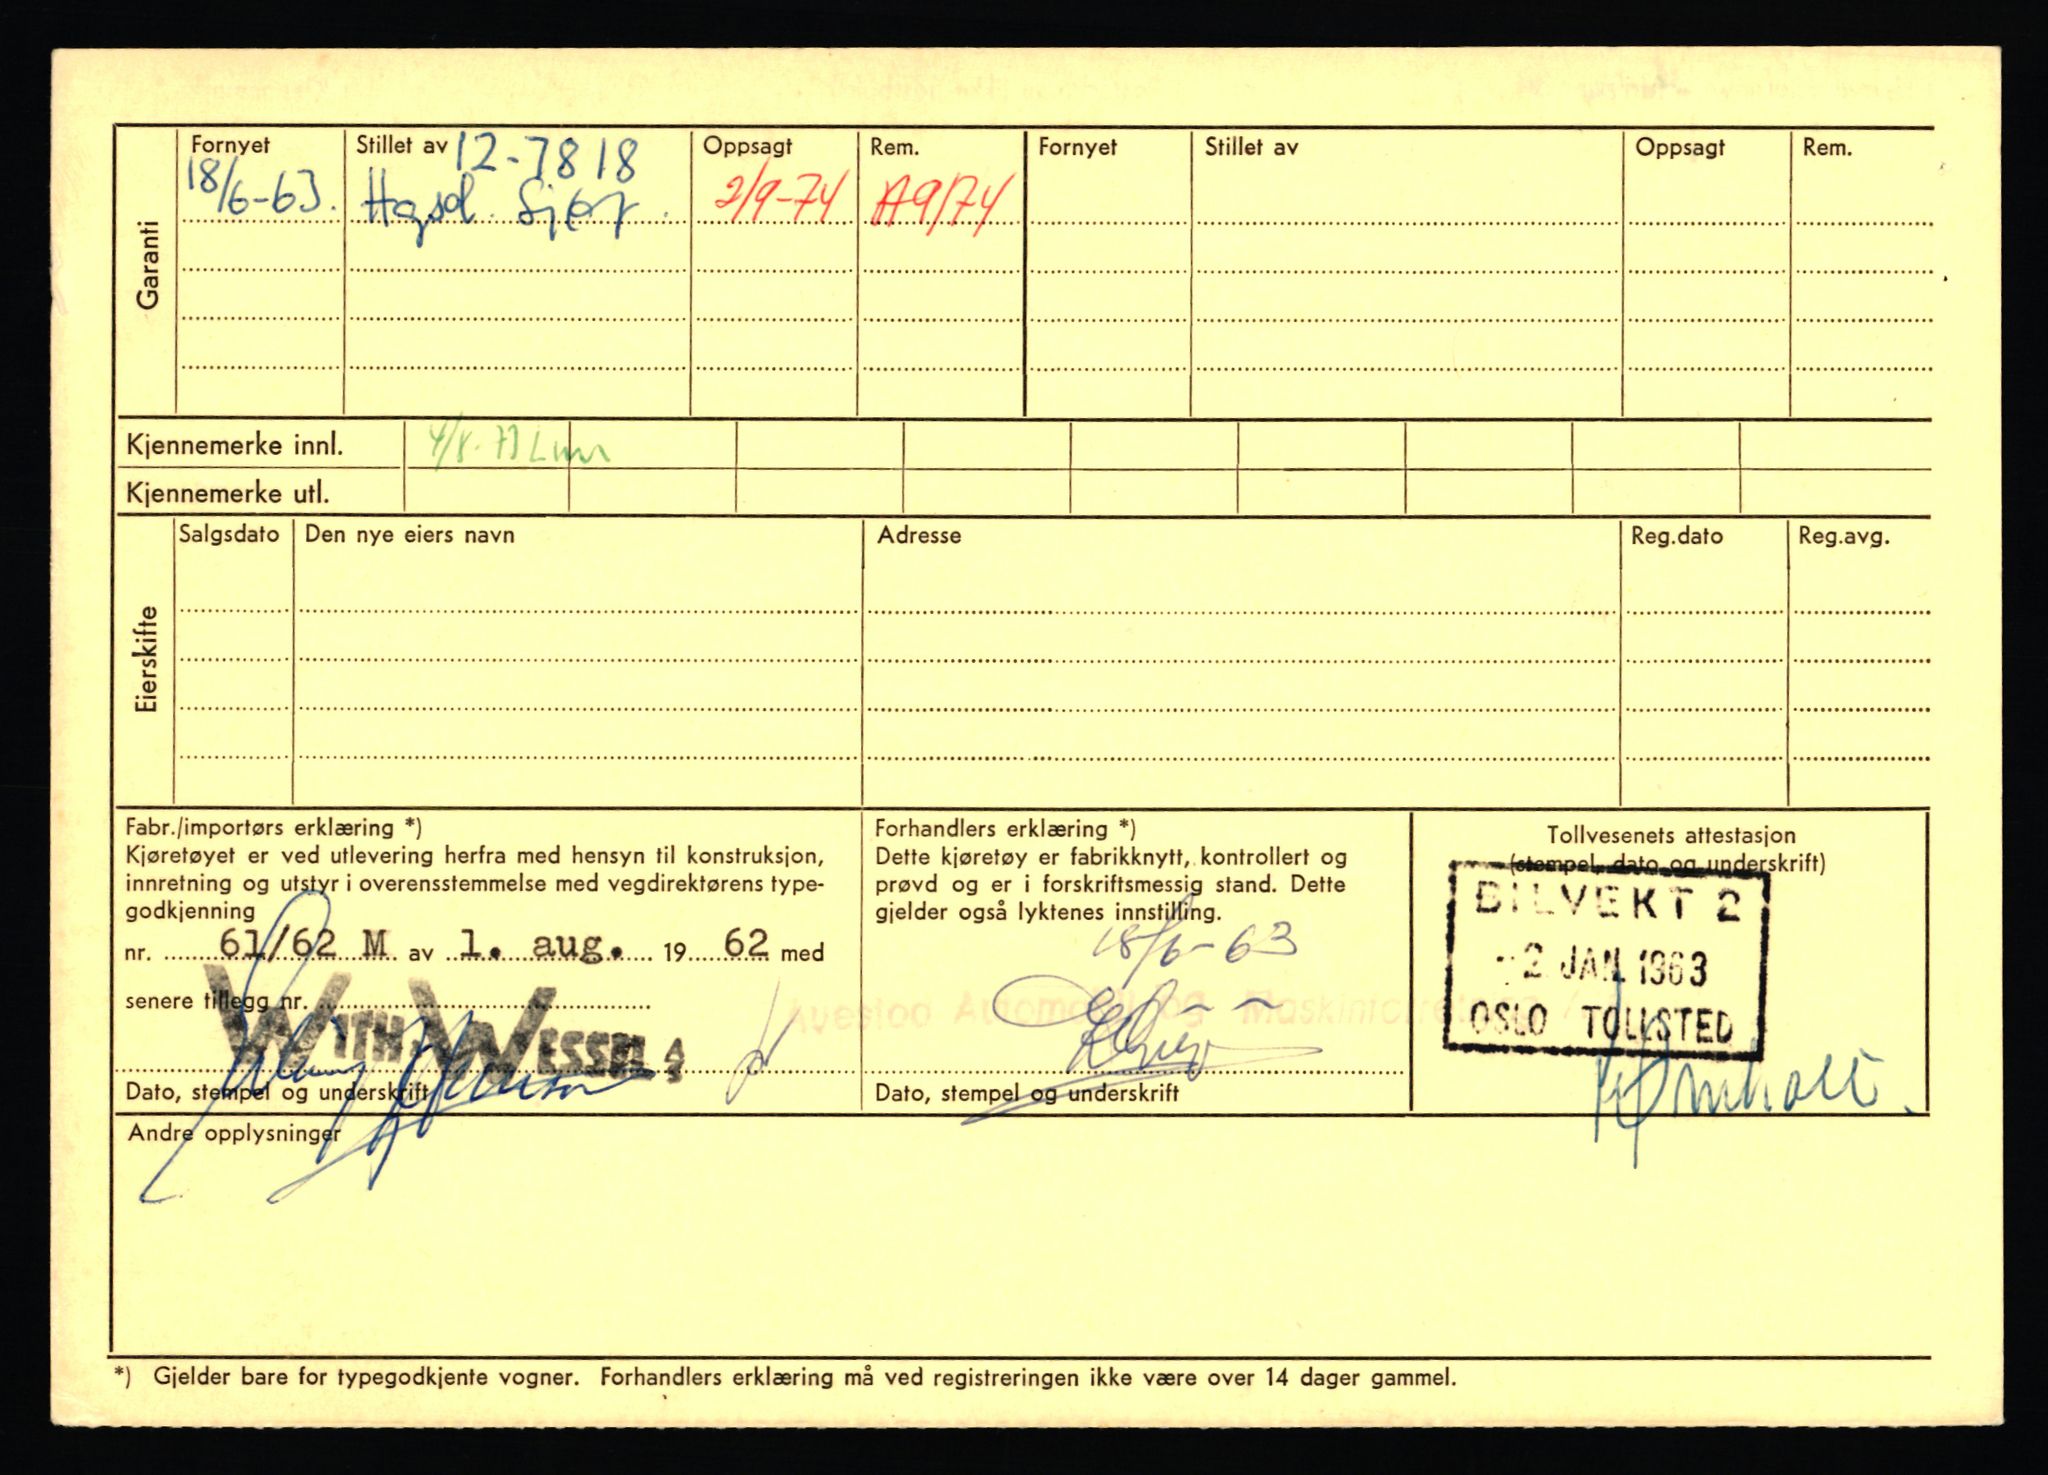 Garanti
Fornyet Stillet av Oppsagt Rem. Fornyet Stillet av Oppsagt Rem.
12-7818
18/6-63. 2/9-74 A9/74
Kjennemerke innl. 4/8-73
Kjennemerke utl.
Eierskifte
Salgsdato Den nye eiers navn Adresse Reg.dato Reg.avg.
Fabr./importørs erklæring *)
Kjøretøyet er ved utlevering herfra med hensyn til konstruksjon,
innretning og utstyr i overensstemmelse med vegdirektørens type-
godkjenning
nr. 61/62 M av 1. aug. 1962 med
senere tillegg nr.
WITH & WESSEL A/S
Dato, stempel og underskrift
Forhandlers erklæring *)
Dette kjøretøy er fabrikknytt, kontrollert og
prøvd og er i forskriftsmessig stand. Dette
gjelder også lyktenes innstilling.
18/6-63
Automobil og Maskinforretning
Dato, stempel og underskrift
Tollvesenets attestasjon
(stempel, dato og underskrift)
BILVEKT 2
-2 JAN. 1963
OSLO TOLLSTED
Andre opplysninger
*) Gjelder bare for typegodkjente vogner. Forhandlers erklæring må ved registreringen ikke være over 14 dager gammel.